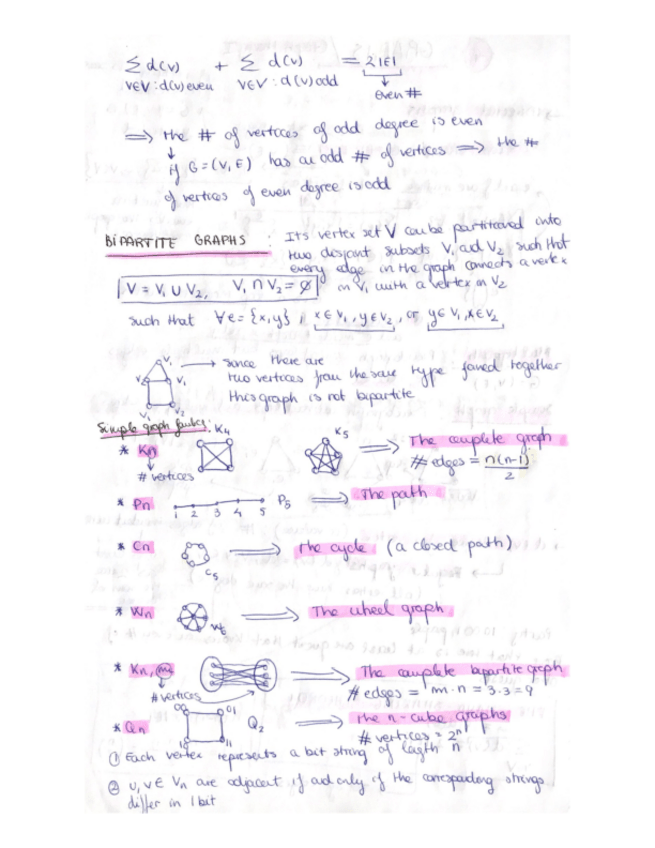 ∑ d(v) + ∑ d(v) = 2|E|
v∈V : d(v) even v∈V : d(v) odd ↓ even #
⟹ the # of vertices of odd degree is even
↓ if G = (V, E) has an odd # of vertices ⟹ the #
of vertices of even degree is odd
BİPARTITE GRAPHS : Its vertex set V can be partitioned into
two disjoint subsets V₁ and V₂ such that
every edge in the graph connects a vertex
in V₁ with a vertex in V₂
V = V₁ ∪ V₂, V₁ ∩ V₂ = ∅
such that ∀e = {x,y}, x∈V₁, y∈V₂, or y∈V₁, x∈V₂
V₁ → since there are
V₂ V₁ two vertices from the same type joined together
this graph is not bipartite
V₁
Simple graph :
* Kn K4 K5 ⟹ The complete graph
↓ # vertices # edges = n(n-1)/2
* Pn 1 2 3 4 5 P5 ⟹ The path
* Cn C5 ⟹ the cycle (a closed path)
* Wn W6 ⟹ The wheel graph
* Kn,m ⟹ The complete bipartite graph
↓ # vertices # edges = m·n = 3·3 = 9
* Qn 00 01 10 11 Q2 ⟹ The n-cube graphs
# vertices = 2ⁿ
① Each vertex represents a bit string of length n
② u, v ∈ Vn are adjacent if and only if the corresponding strings
differ in 1 bit